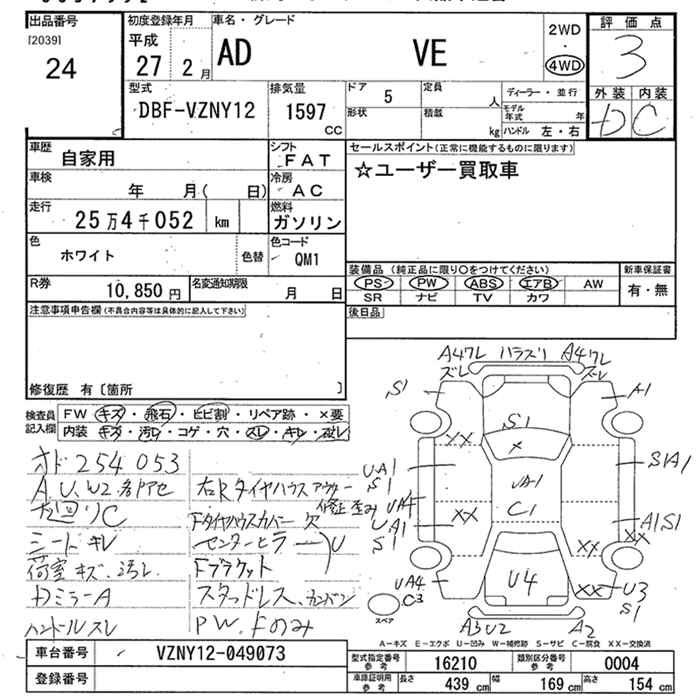 出品番号
[2039]
24
初度登録年月
平成
27 2月
車名・グレード
AD VE
2WD
・
4WD
評価点
3
外装 内装
D C
型式
DBF-VZNY12
排気量
1597
CC
ドア 5
形状
定員 人
積載 kg
ディーラー・並行
モデル年式 年
ハンドル 左・右
車歴
自家用
シフト
FAT
車検
年 月( 日)
冷房
AC
走行
25万4千052 km
燃料
ガソリン
色
ホワイト
色替
色コード
QM1
R券
10,850 円
名変通知期限
月 日
セールスポイント(正常に機能するものに限ります)
☆ユーザー買取車
装備品 (純正品に限り○をつけてください)
PS PW ABS エアB AW
SR ナビ TV カワ
新車保証書
有・無
後日品
注意事項申告欄(不具合内容等は具体的に記入して下さい)
修復歴 有〔箇所 〕
検査員記入欄
FW キズ・飛石・ヒビ割・リペア跡・×要
内装 キズ・汚れ・コゲ・穴・スレ・キレ・
オド254053
A.U.W2
C
シートキレ
荷室キズ、汚レ
DミラーA
ハンドルスレ
右Rタイヤハウスアウター
修正歪み
Fタイヤハウスカバー欠
センターピラー
U
Fブラケット
スタッドレス、カンバン
PW、Fのみ
A4ワレ ズレ
ハラズリ
A4ワレ ズレ
S1
A1
S1
XX
X
UA1
S1
UA1
C1
S1A1
UA4
UA1
S1
XX
A1S1
XX
XX
UA4
C3
U4
XX
U3
S1
A3U2
A2
スペア
A-キズ E-エクボ U-凹み W-補修跡 S-サビ C-腐食 XX-交換済
車台番号
VZNY12-049073
登録番号
型式指定番号
参考
16210
類別区分番号
参考
0004
車庫証明用
参考
長さ 439 cm
幅 169 cm
高さ 154 cm